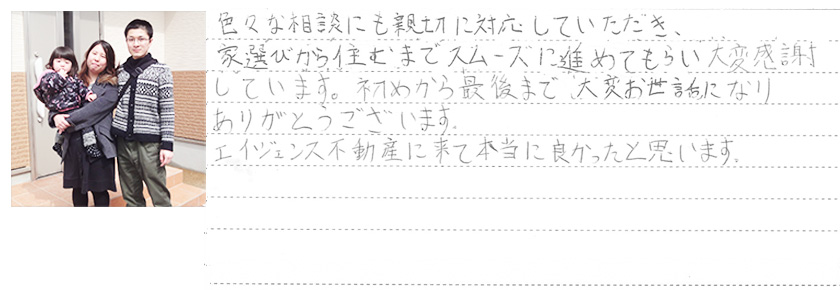 色々な相談にも親切に対応していただき、
家選びから住むまでスムーズに進めてもらい大変感謝
しています。初めから最後まで大変お世話になり
ありがとうございます。
エイジェンス不動産に来て本当に良かったと思います。